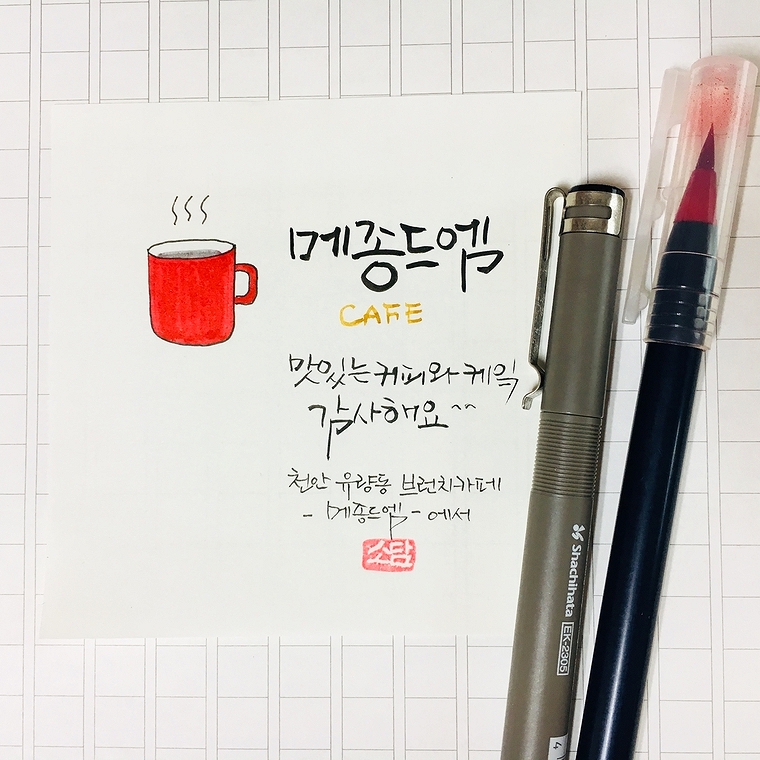 메종드엠
CAFE
맛있는 커피와 케익
감사해요^^
천안 유량동 브런치카페
- 메종드엠 - 에서
소탐
Shachihata EK-2305
4